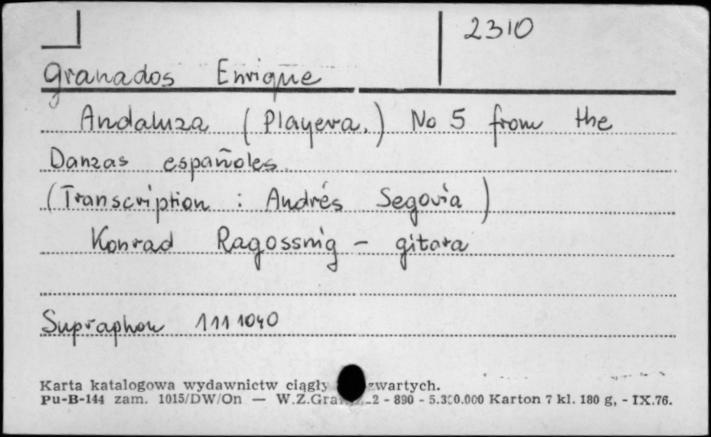 2310
Granados Enrique
Andaluza (Playera.) No 5 from the
Danzas españoles
(Transcription : Andrés Segovia)
Konrad Ragossnig - gitara
Supraphon 111 1040
Karta katalogowa wydawnictw ciągły zwartych.
Pu-B-144 zam. 1015/DW/On — W.Z.Graf. 2 - 890 - 5.300.000 Karton 7 kl. 180 g, - IX.76.